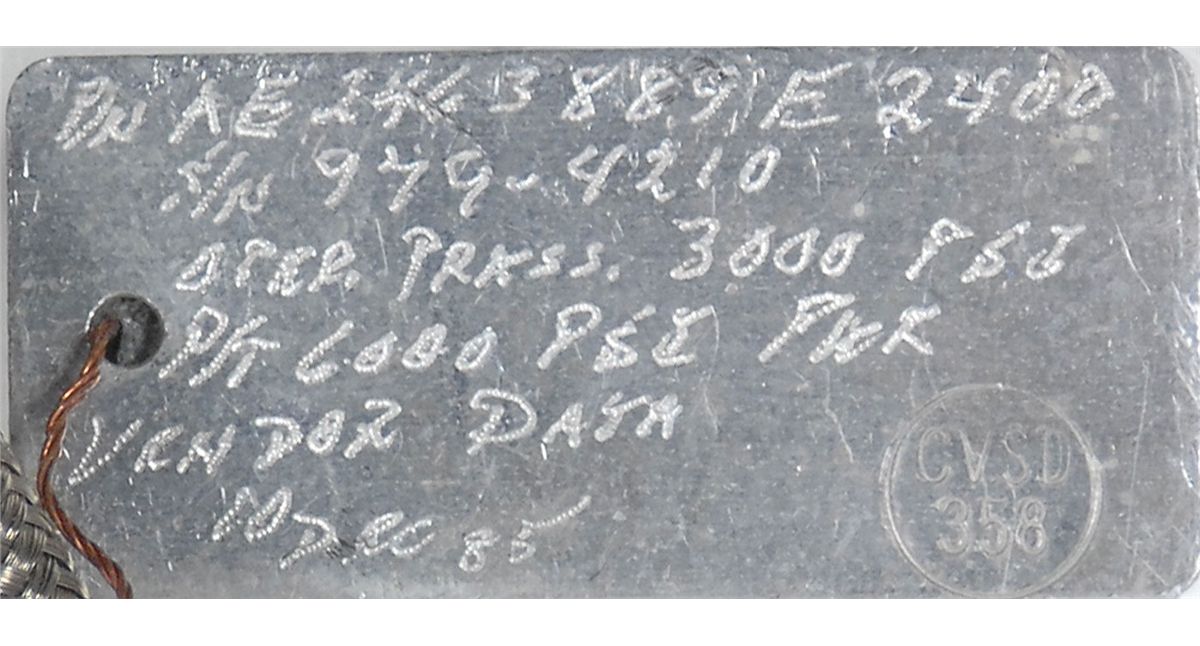 P/N AE2463889E2400
S/N 979-4210
OPER. PRESS. 3000 PSI
P/T 6000 PSI PER
VENDOR DATA
M DEC 85
CVSD
358